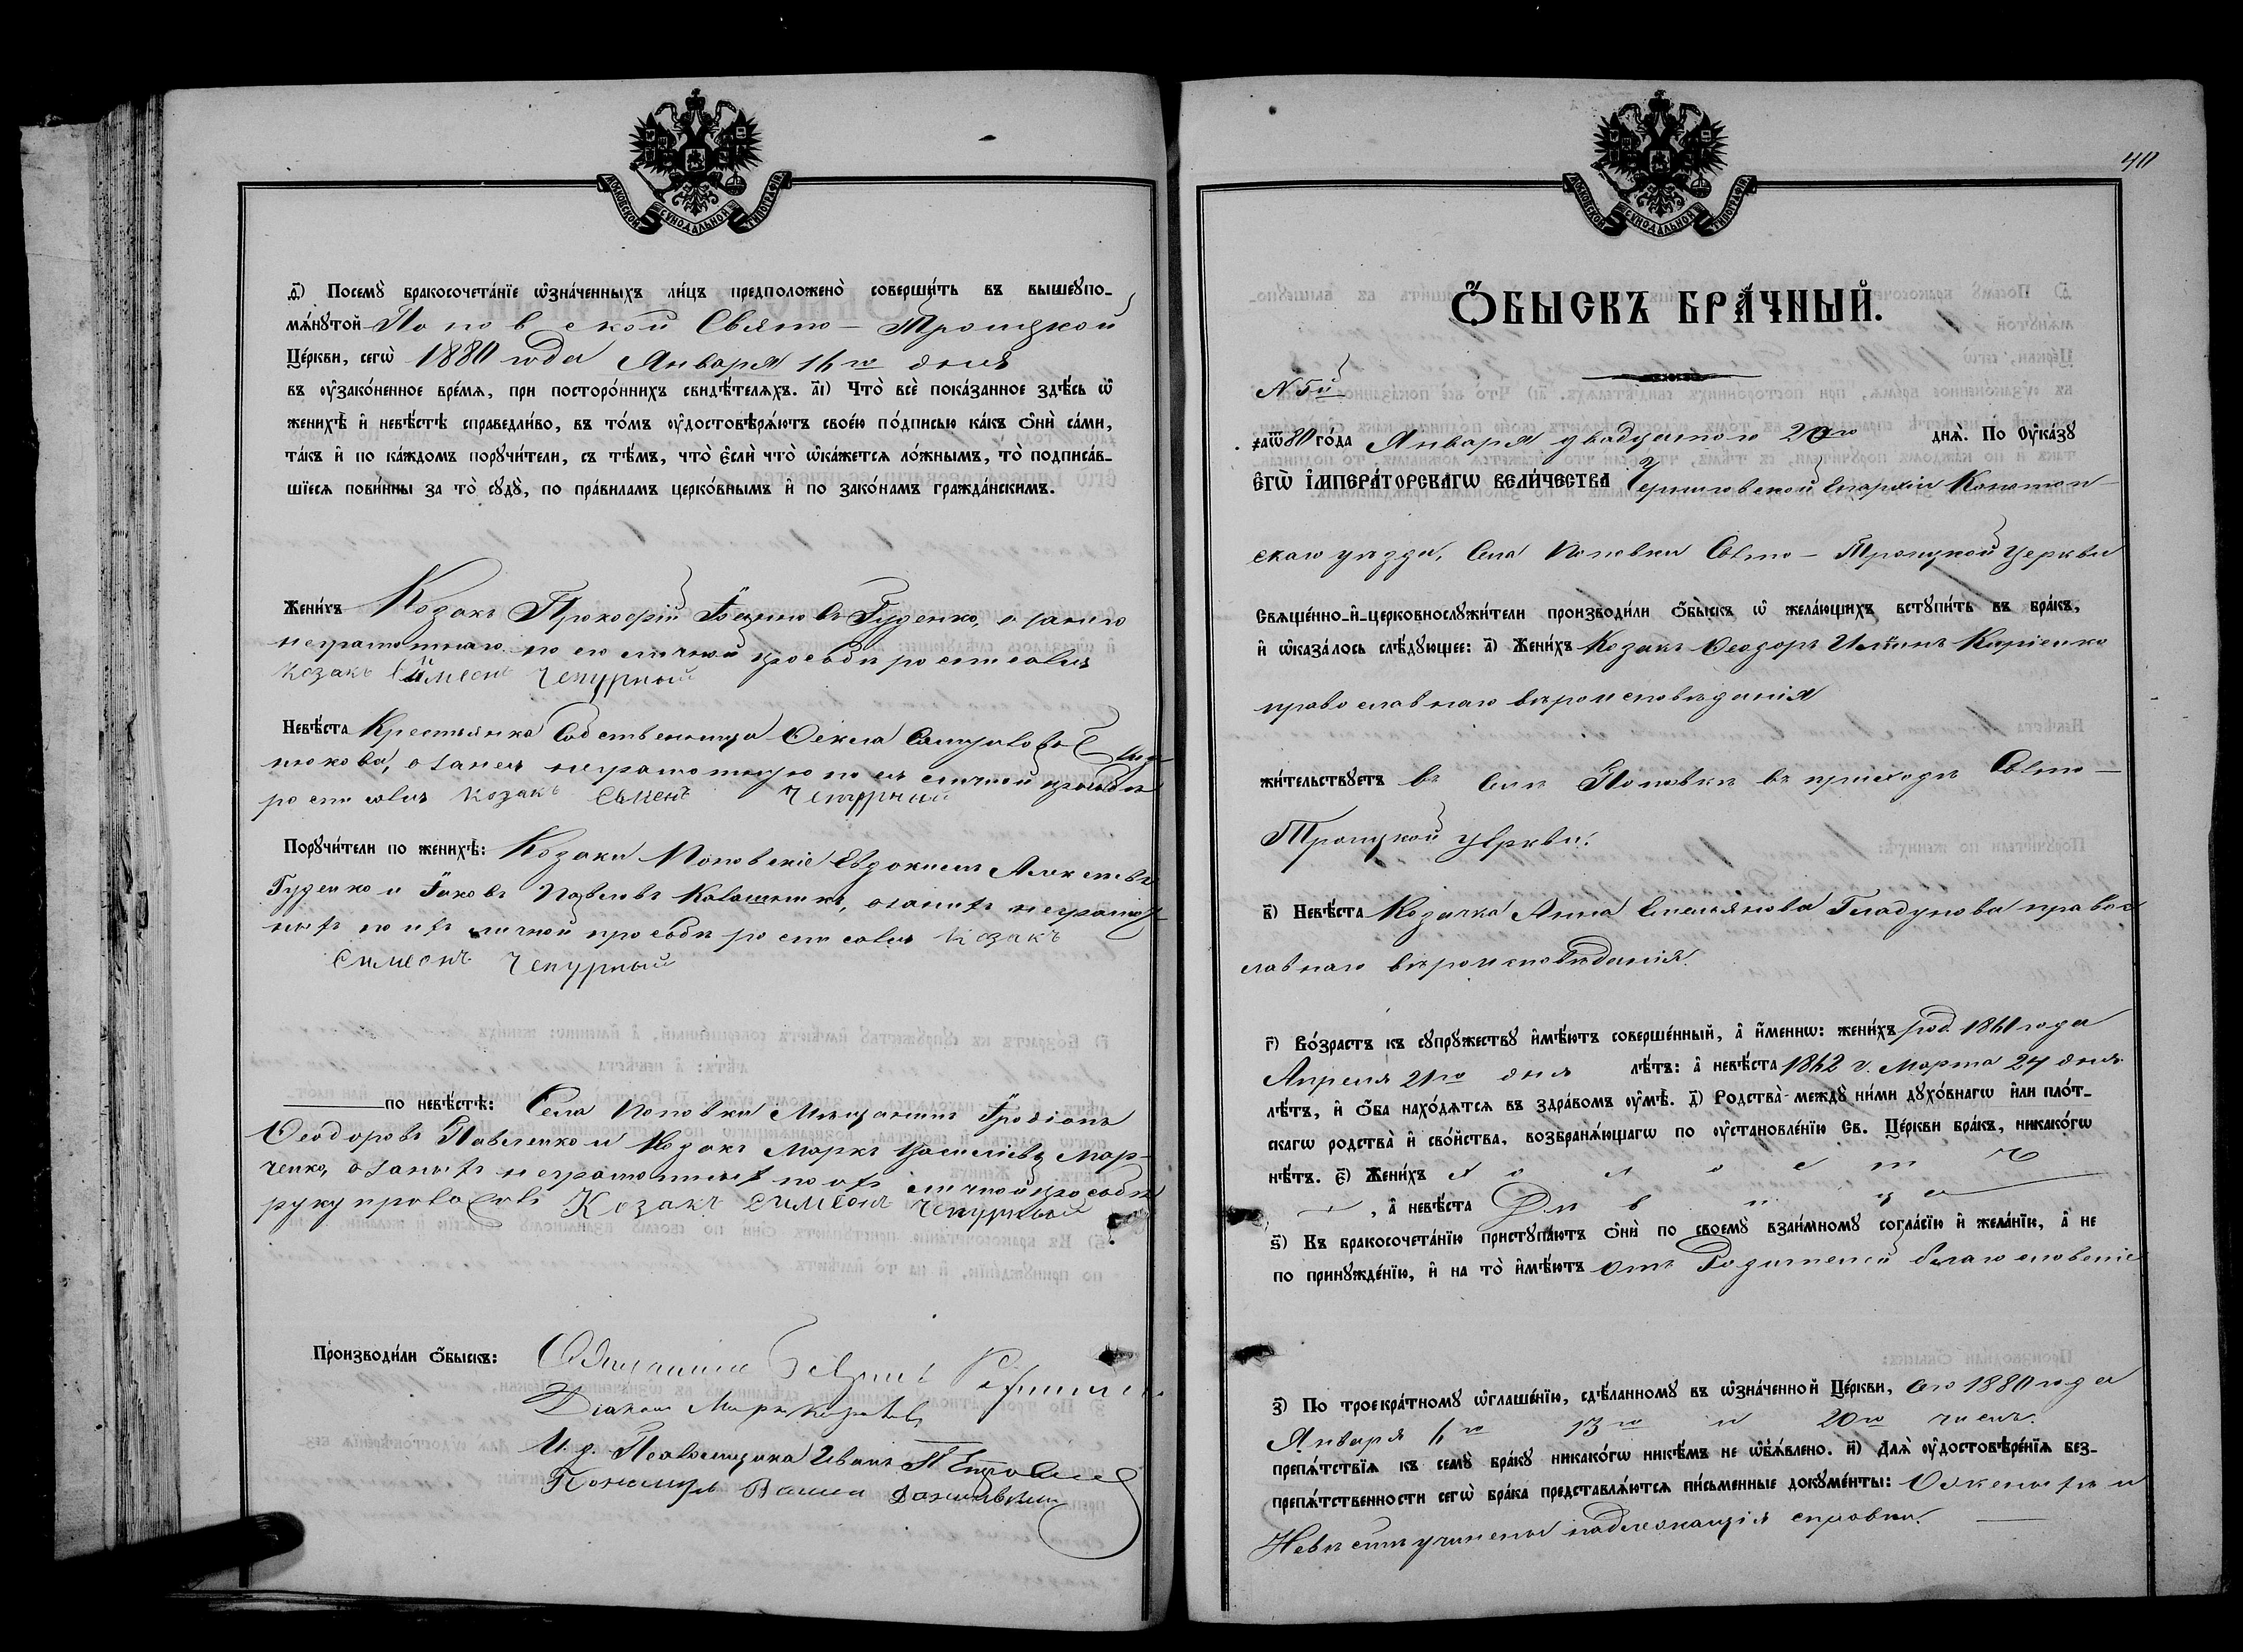 МОСКОВСКОЙ СѴНОДАЛЬНОЙ ТИПОГРАФІИ
і҃) Посемꙋ̀ бракосочета́нїе ѡ҆зна́ченныхъ ли́цъ предположено̀ соверши́ть въ вышеꙋпо-
мѧ́нꙋтой Поповской Свято-Троицкой
Це́ркви, сегѡ̀ 1880 года Января 16го дня
въ ᲂу҆зако́ненное вре́мѧ, при посторо́ннихъ свидѣ́телѧхъ. а҃і) Что̀ всѐ пока́занное здѣ́сь ѡ҆
женихѣ̀ и҆ невѣ́стѣ справедли́во, въ то́мъ ᲂу҆достовѣрѧ́ютъ свое́ю по́дписью ка́къ ѻ҆нѝ са́ми,
та́къ и҆ по ка́ждомъ порꙋчи́тели, съ тѣ́мъ, что̀ є҆слѝ что̀ ѡ҆ка́жетсѧ ло́жнымъ, то̀ подписа́в-
шїесѧ пови́нны за то̀ сꙋдꙋ̀, по пра́виламъ церко́внымъ и҆ по зако́намъ гражда́нскимъ.
Жени́хъ Козакъ Прокофій Гуденко, а за него
неграмотнаго по его личной прозьбѣ росписался
Козакъ Симеонъ Чепурный
Невѣ́ста Крестьянка Собственница Ѳекла
нюкова, а за нея неграмотную по ея личной прозьбѣ
росписался Козакъ Семенъ Чепурный
Порꙋчи́тели по женихѣ̀: Козаки Поповскіе Евдокимъ Алексѣевъ
Гуденко и Іаковъ Павловъ, а за нихъ неграмот-
ныхъ по ихъ личной прозьбѣ росписался Козакъ
Симеонъ Чепурный
по невѣ́стѣ: Села Поповки Мѣщанинъ Іродіонъ
Ѳеодоровъ Павленко и Козакъ Маркъ Василіевъ Мар-
ченко, а за нихъ неграмотныхъ по ихъ личной прозьбѣ
руку приложилъ Козакъ Симеонъ Чепурный
Производи́ли ѻ҆́быскъ: Священникъ
Діаконъ
И. д. Псаломщика Иванъ
Пономарь
МОСКОВСКОЙ СѴНОДАЛЬНОЙ ТИПОГРАФІИ
40
Ѻ҆́БЫСКЪ БРА́ЧНЫЙ.
№ 5й
҂аѡ҃80 го́да Января двадцатого 20го днѧ̀. По Оу҆ка́зꙋ
Є҆ГѠ̀ І҆МПЕРА́ТОРСКАГѠ ВЕЛИ́ЧЕСТВА Черниговской Епархіи Конотоп-
скаго уѣзда, Села Поповки Свято-Троицкой Церкви
Свѧще́нно-и҆-церковнослꙋжи́тели производи́ли ѻ҆́быскъ ѡ҆ жела́ющихъ встꙋпи́ть въ бра́къ,
и҆ ѡ҆каза́лось слѣ́дꙋющее: а҃) Жени́хъ Козакъ Ѳеодоръ Ильинъ Киріенко
православнаго вѣроисповѣданія
жи́тельствꙋетъ въ Селѣ Поповкѣ въ приходѣ Свято-
Троицкой Церкви.
в҃) Невѣ́ста Козачка Анна Емельянова Гладунова право-
славнаго вѣроисповѣданія.
г҃) Во́зрастъ къ сꙋпрꙋ́жествꙋ и҆мѣ́ютъ соверше́нный, а҆ и҆́меннѡ: жени́хъ род. 1861 года
Апреля 21го дня лѣ́тъ: а҆ невѣ́ста 1862 г. Марта 24 дня
лѣ́тъ, и҆ ѻ҆́ба нахо́дѧтсѧ въ здра́вомъ ᲂу҆мѣ̀. д҃) Родства̀ междꙋ̀ ни́ми дꙋхо́внагѡ и҆лѝ пло́т-
скагѡ родства̀ и҆ сво́йства, возбранѧ́ющагѡ по ᲂу҆становле́нїю Св. Це́ркви бра́къ, никако́гѡ
нѣ́тъ. є҃) Жени́хъ холостъ
, а҆ невѣ́ста Дѣвица
ѕ҃) Къ бракосочета́нїю пристꙋпа́ютъ ѻ҆нѝ по своемꙋ̀ взаи́мномꙋ согла́сїю и҆ жела́нїю, а҆ не
по принꙋжде́нїю, и҆ на то̀ и҆мѣ́ютъ отъ Родителей благословеніе
з҃) По троекра́тномꙋ ѡ҆глаше́нїю, сдѣ́ланномꙋ въ ѡ҆зна́ченной Це́ркви, сего 1880 года
Января 6го 13го и 20го чиселъ.
препѧ́тствїѧ къ семꙋ̀ бра́кꙋ никако́гѡ никѣ́мъ не ѡ҆б̾ѧ́влено. и҃) Длѧ̀ ᲂу҆достовѣре́нїѧ без-
препѧ́тственности сегѡ̀ бра́ка представлѧ́ютсѧ пи́сьменные докꙋме́нты: О женихѣ и
Невѣстѣ учинены надлежащія справки.